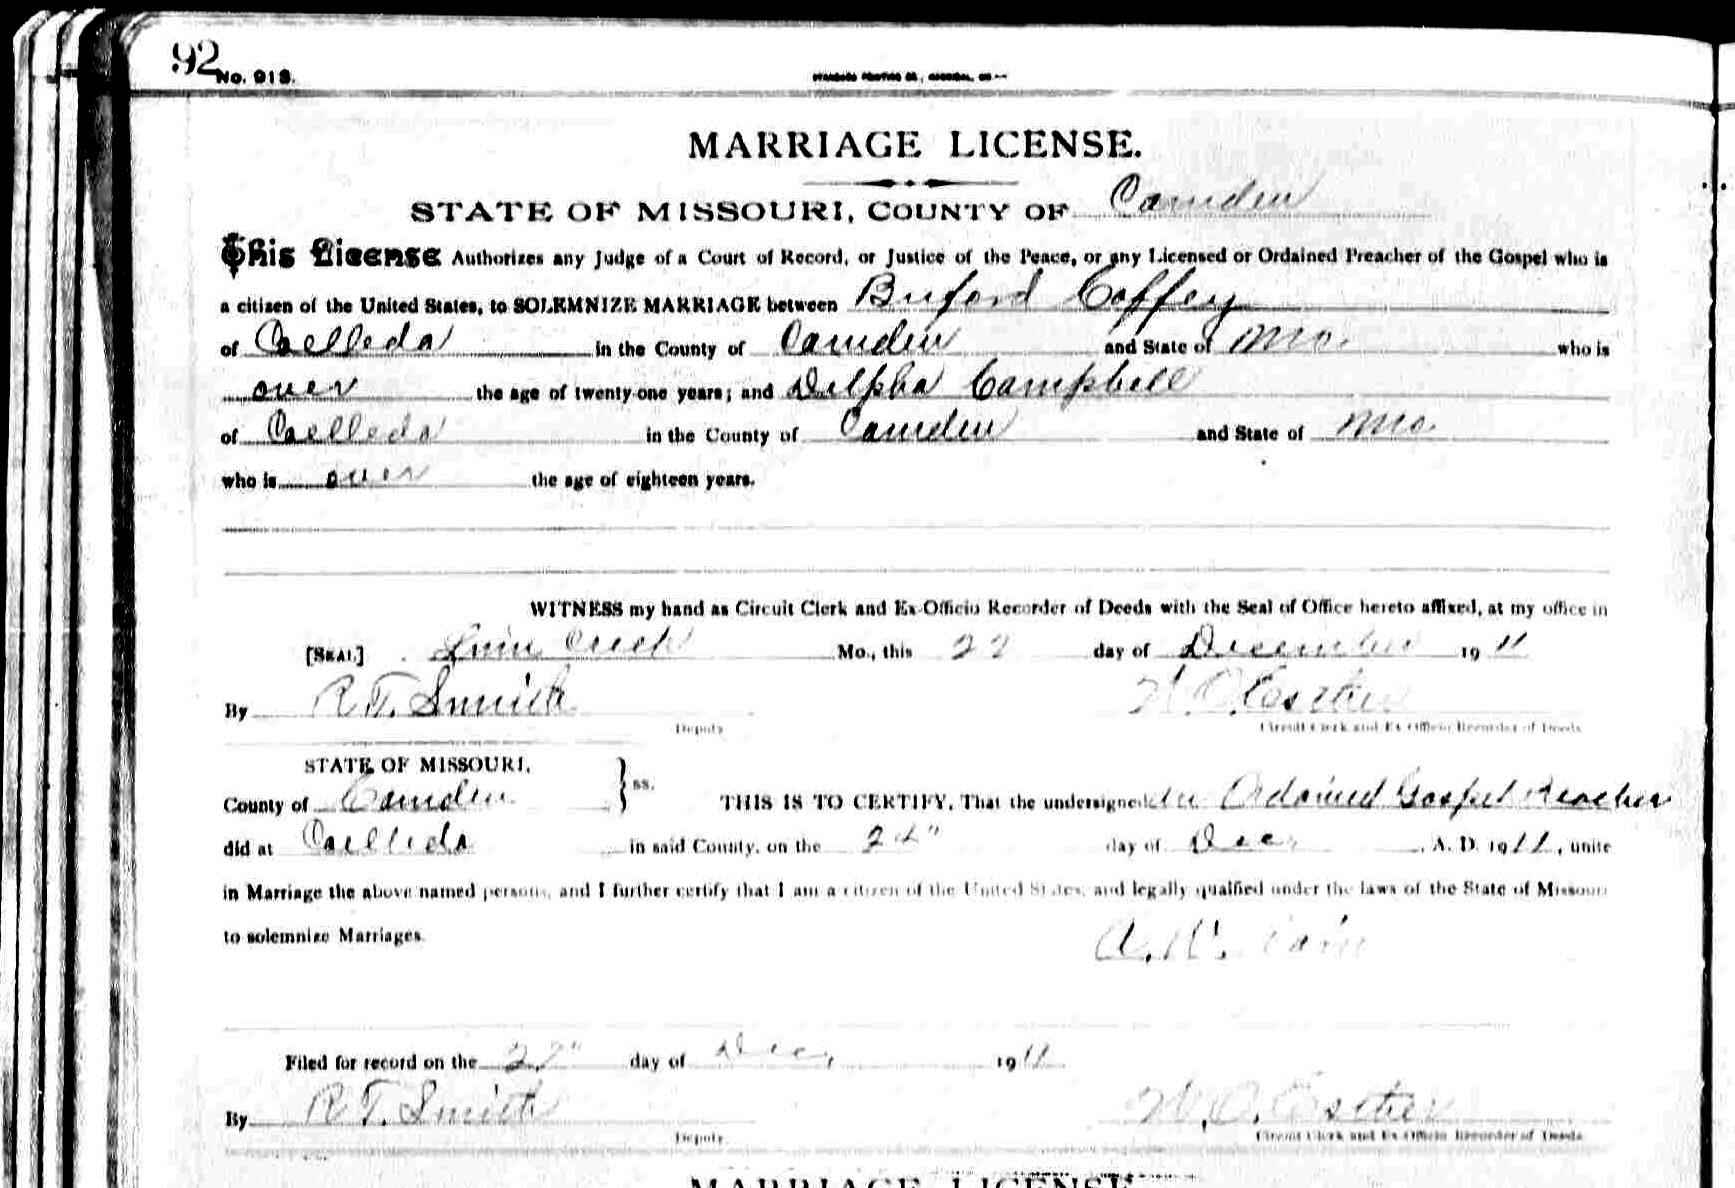 92
No. 913.
MARRIAGE LICENSE.
STATE OF MISSOURI, COUNTY OF Camden
This License Authorizes any Judge of a Court of Record, or Justice of the Peace, or any Licensed or Ordained Preacher of the Gospel who is
a citizen of the United States, to SOLEMNIZE MARRIAGE between Buford Coffey
of Celleda in the County of Camden and State of Mo. who is
over the age of twenty-one years; and Delpha Campbell
of Celleda in the County of Camden and State of Mo.
who is over the age of eighteen years.
WITNESS my hand as Circuit Clerk and Ex-Officio Recorder of Deeds with the Seal of Office hereto affixed, at my office in
[SEAL] Linn Creek Mo., this 22 day of December 19 11
By R.T. Smith W. O. Esther
Deputy Circuit Clerk and Ex-Officio Recorder of Deeds
STATE OF MISSOURI,
County of Camden } ss. THIS IS TO CERTIFY, That the undersigned Ordained Gospel Preacher
did at Celleda in said County, on the day of Dec. A. D. 1911, unite
in Marriage the above named persons, and I further certify that I am a citizen of the United States, and legally qualfied under the laws of the State of Missouri
to solemnize Marriages.
A. W.
Filed for record on the 27" day of Dec, 1911
By R T. Smith W. O. Esther
Deputy Circuit Clerk and Ex-Officio Recorder of Deeds
MARRIAGE LICENSE